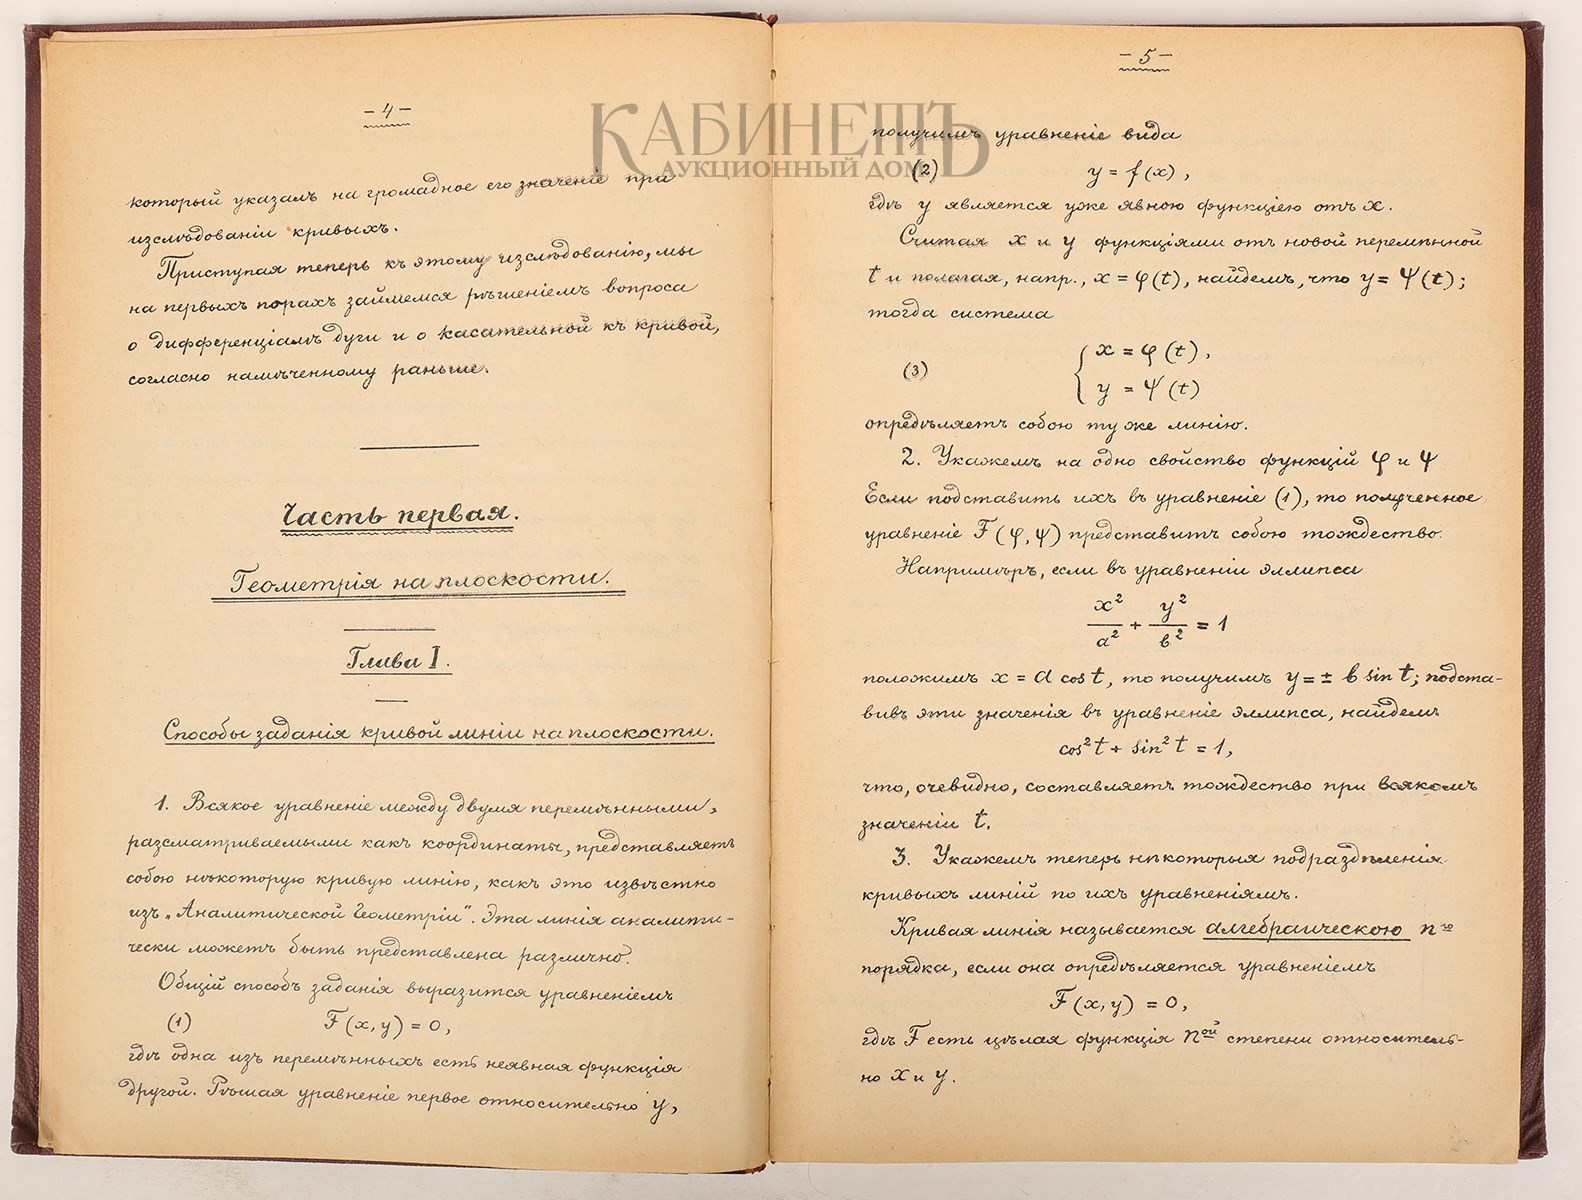 - 4 -
который указалъ на громадное его значеніе при
изслѣдованіи кривыхъ.
Приступая теперь къ этому изслѣдованію, мы
на первыхъ порахъ займемся рѣшеніемъ вопроса
о дифференціалѣ дуги и о касательной къ кривой,
согласно намѣченному раньше.
Часть первая.
Геометрія на плоскости.
Глава I.
Способы заданія кривой линіи на плоскости.
1. Всякое уравненіе между двумя перемѣнными,
разсматриваемыми какъ координаты, представляетъ
собою нѣкоторую кривую линію, какъ это извѣстно
изъ „Аналитической Геометріи". Эта линія аналити-
чески можетъ быть представлена различно.
Общій способъ заданія выразится уравненіемъ
(1) F(x, y) = 0,
гдѣ одна изъ перемѣнныхъ есть неявная функція
другой. Рѣшая уравненіе первое относительно y,
- 5 -
КАБИНЕТЪ
АУКЦИОННЫЙ ДОМ
получимъ уравненіе вида
(2) y = f(x),
гдѣ y является уже явною функціею отъ x.
Считая x и y функціями отъ новой перемѣнной
t и полагая, напр., x = φ(t), найдемъ, что y = ψ(t);
тогда система
(3) { x = φ(t),
y = ψ(t)
опредѣляетъ собою ту же линію.
2. Укажемъ на одно свойство функцій φ и ψ
Если подставить ихъ въ уравненіе (1), то полученное
уравненіе F(φ, ψ) представитъ собою тождество.
Напримѣръ, если въ уравненіи эллипса
x²/a² + y²/b² = 1
положимъ x = a cos t, то получимъ y = ± b sin t; подста-
вивъ эти значенія въ уравненіе эллипса, найдемъ
cos² t + sin² t = 1,
что, очевидно, составляетъ тождество при всякомъ
значеніи t.
3. Укажемъ теперь нѣкоторыя подраздѣленія
кривыхъ линій по ихъ уравненіямъ.
Кривая линія называется алгебраическою n го
порядка, если она опредѣляется уравненіемъ
F(x, y) = 0,
гдѣ F есть цѣлая функція n ой степени относитель-
но x и y.